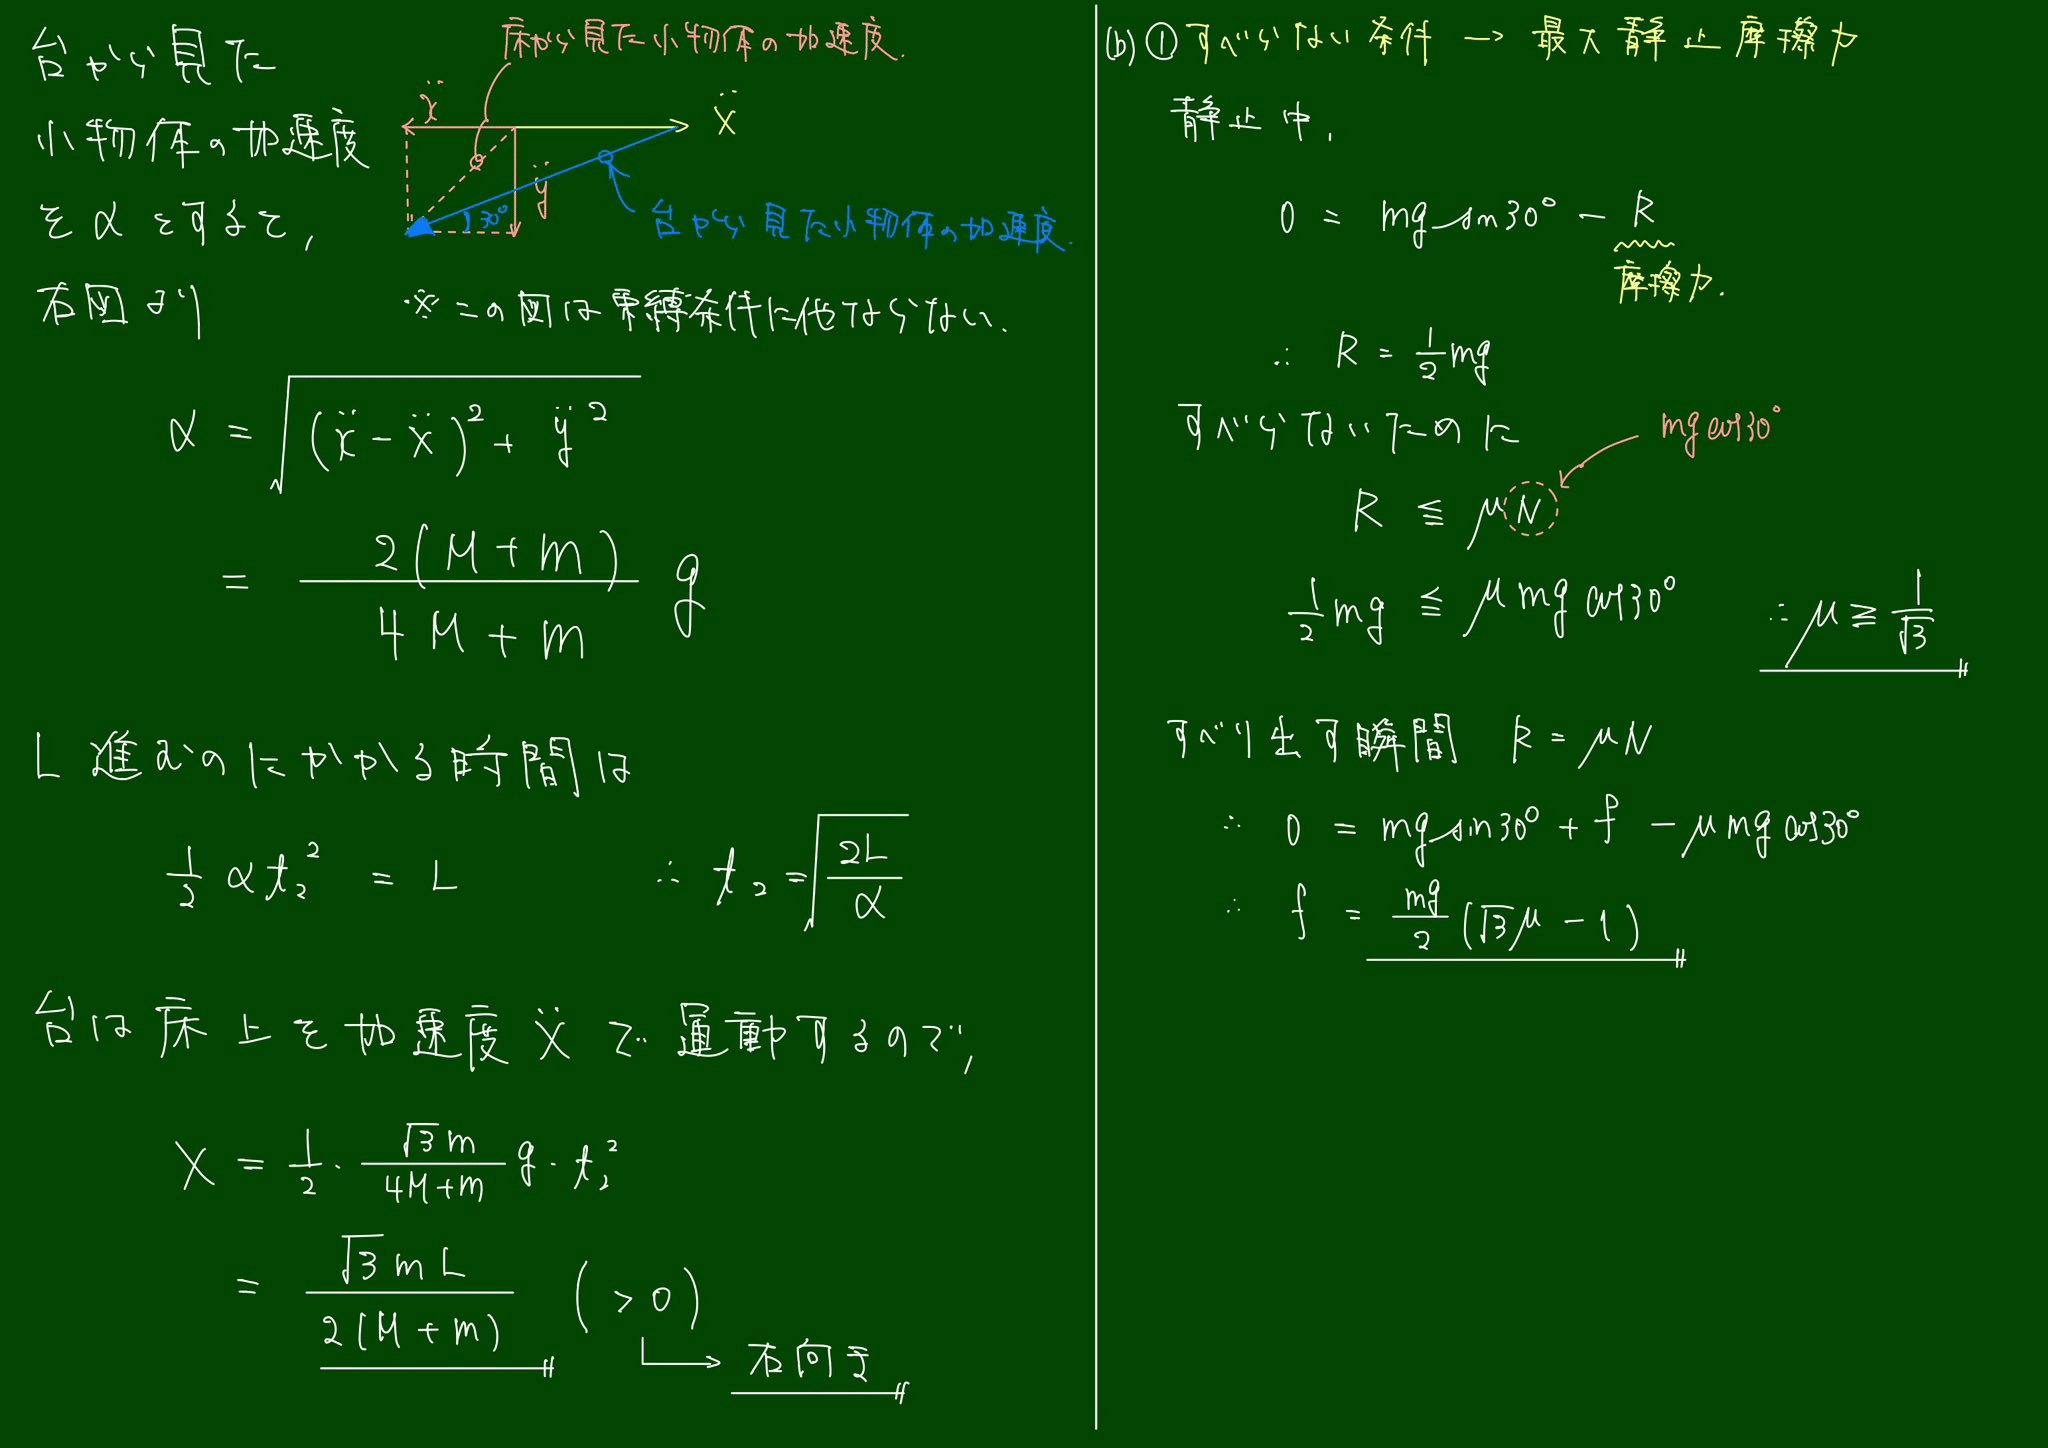 台から見た
小物体の加速度
をαとすると,
右図より
床から見た小物体の加速度.
ẍ
Ẍ
ÿ
30°
台から見た小物体の加速度.
※この図は束縛条件に他ならない.
α = √((ẍ - Ẍ)² + ÿ²)
= 2(M+m)/(4M+m) g
L進むのにかかる時間は
1/2 αt₂² = L ∴ t₂ = √(2L/α)
台は床上を加速度Ẍで運動するので,
X = 1/2 · √3m/(4M+m) g · t₂²
= √3mL/(2(M+m)) (>0)
→ 右向き
(b) ① すべらない条件 → 最大静止摩擦力
静止中,
0 = mg sin30° - R
摩擦力.
∴ R = 1/2 mg
すべらないために
mg cos30°
R ≦ μN
1/2 mg ≦ μmg cos30° ∴ μ ≧ 1/√3
すべり出す瞬間 R = μN
∴ 0 = mg sin30° + f - μmg cos30°
∴ f = mg/2 (√3μ - 1)